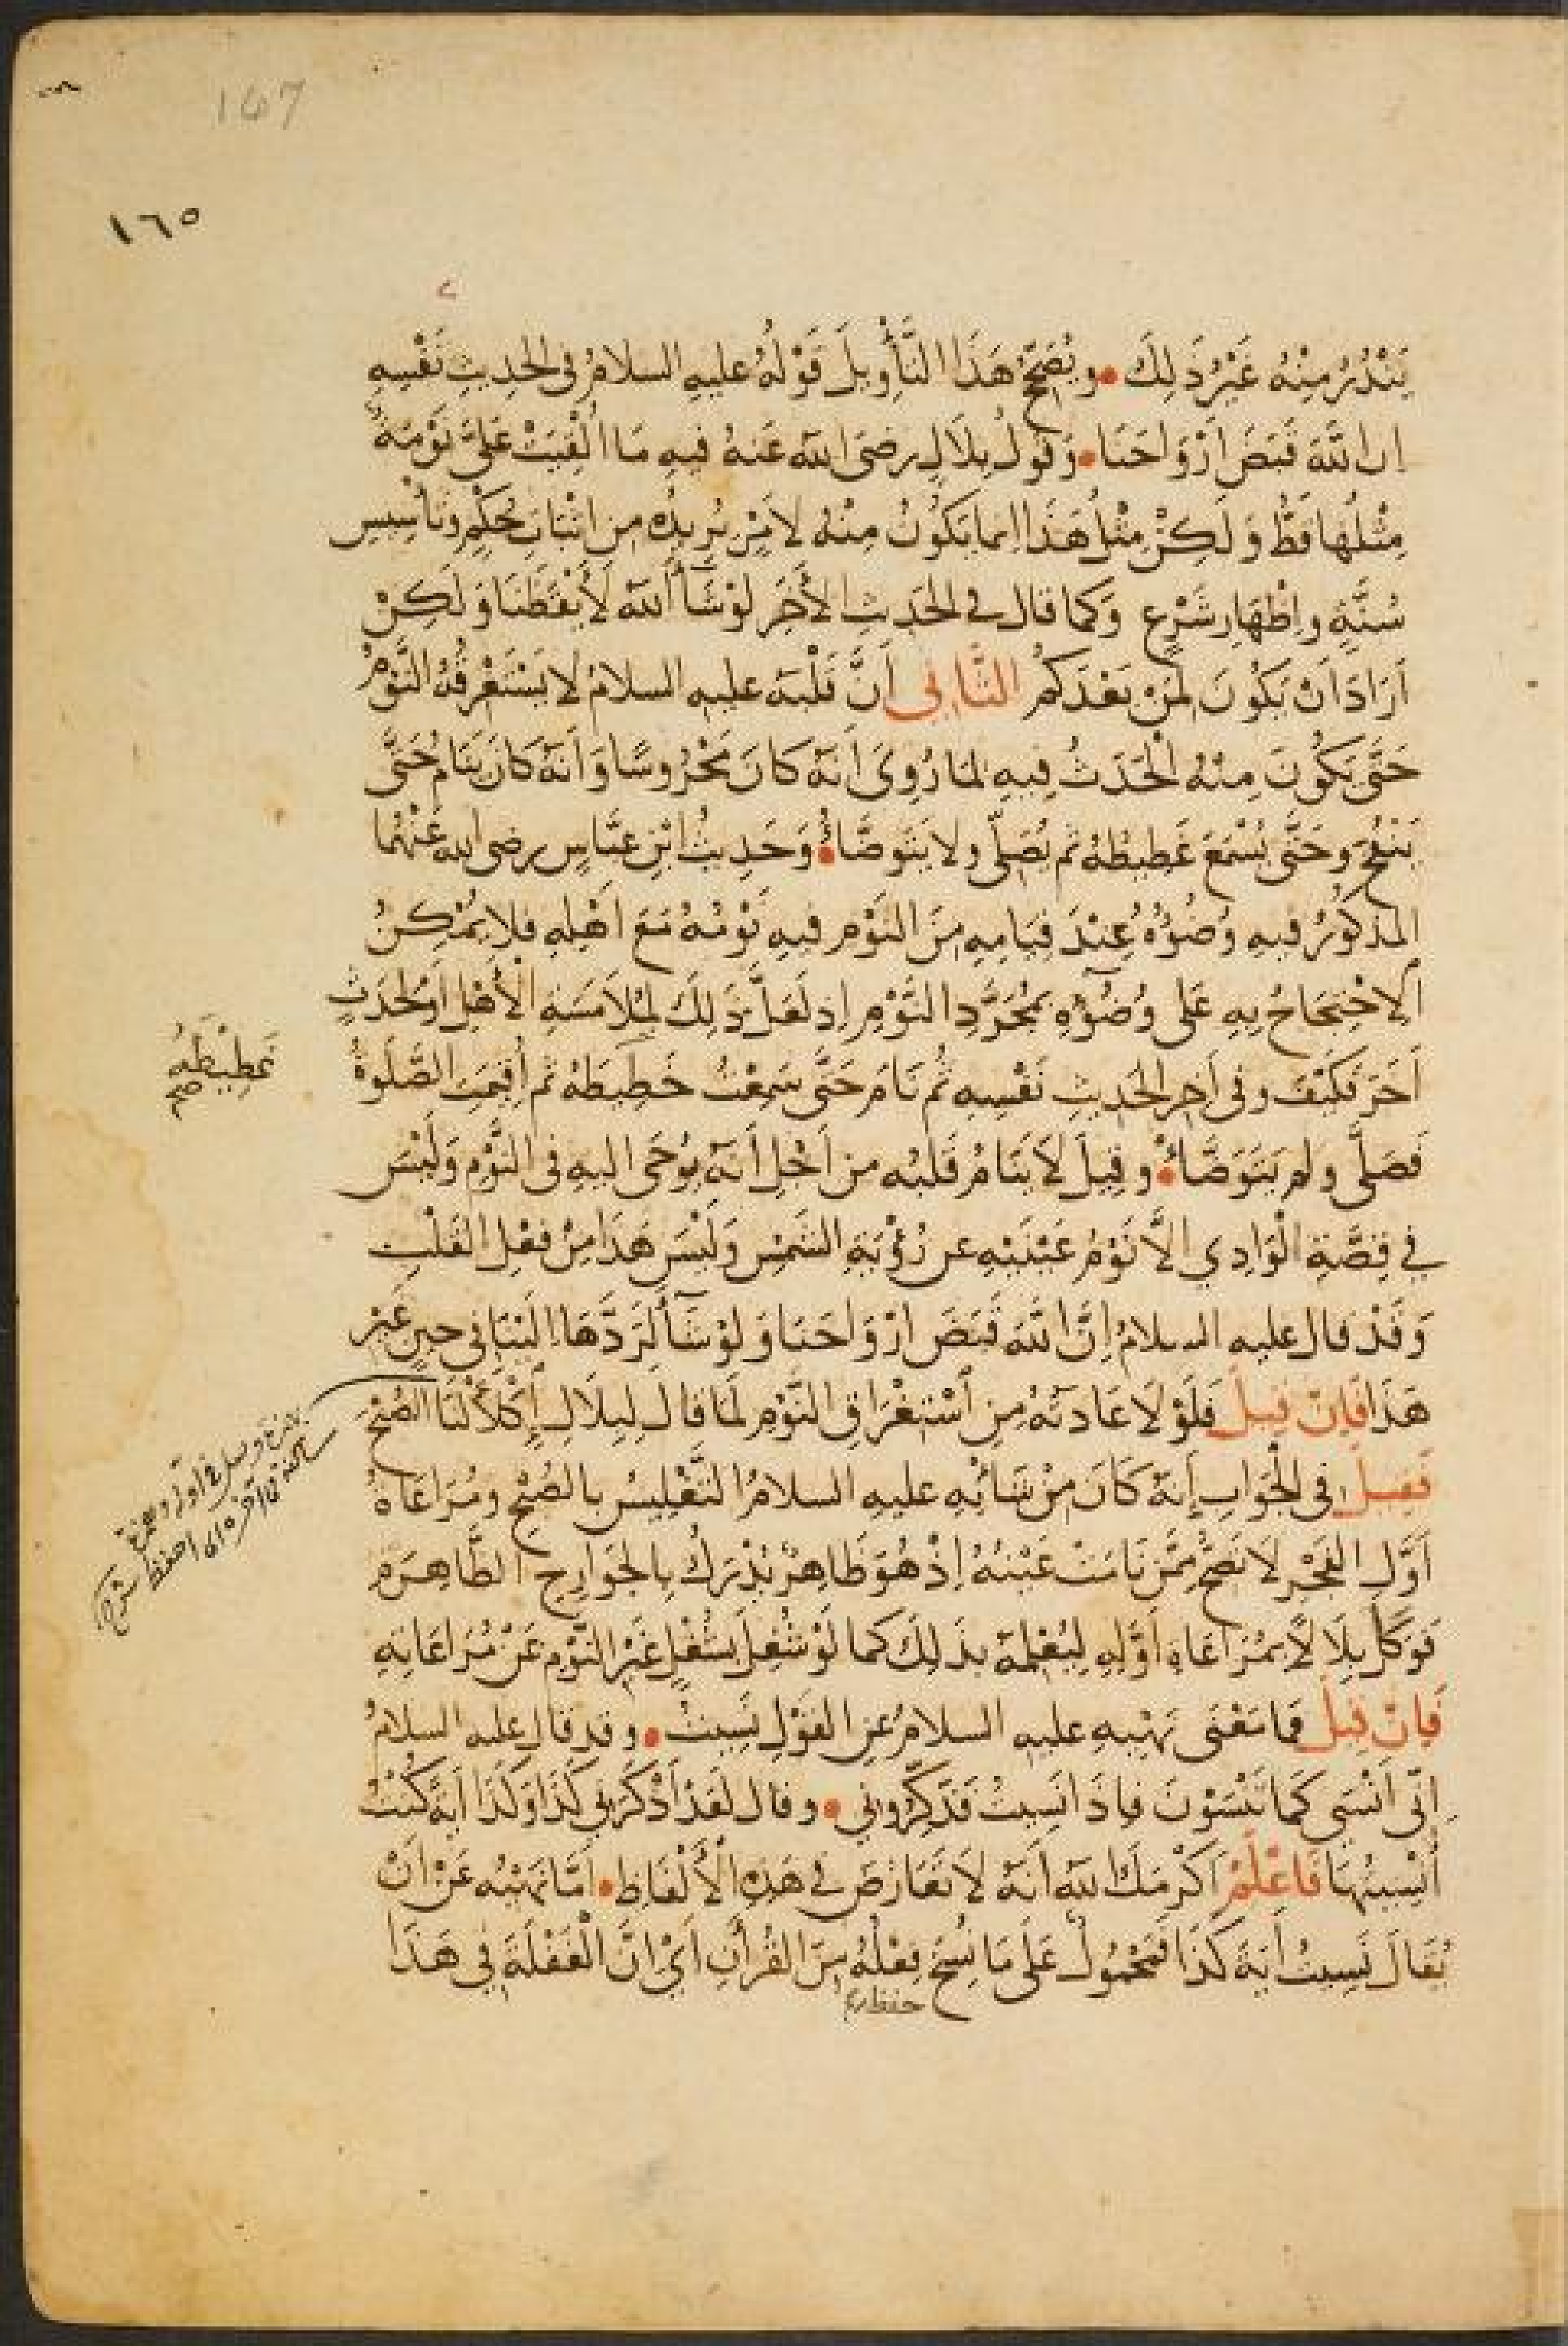 147
١٦٥
يَنْدُرُ مِنْهُ غَيْرُ ذَلِكَ • وَيُصَحِّحُ هَذَا التَّأْوِيلَ قَوْلُهُ عليهِ السلامُ فى الحَدِيثِ نَفْسِهِ
ان اللهَ قَبَضَ أَرْوَاحَنَا • وَقَوْلُ بِلَالٍ رضىَ الله عَنهُ فيهِ مَا أُلْقِيَتْ عَلَىَّ نَوْمَةٌ
مِثْلُهَا قَطُّ وَلَكِنْ مِثْلُ هَذَا اِنما يَكُونُ مِنْهُ لاَمْرٍ يُرِيدُه مِن اثْبَاتِ حُكْمٍ وَتَأْسِيسِ
سُنَّةٍ واِظْهَارِ شَرْعٍ وَكَما قال فى الحَدِيثِ الآخَرِ لَوْ شَآءَ اللهُ لَأَيْقَظَنَا وَلَكِنْ
اَرَادَ اَنْ يَكُونَ لِمَنْ بَعْدَكُمْ الثَّانِي أَنَّ قَلْبَهُ عليهِ السلامُ لا يَسْتَغْرِقُهُ النَّوْمُ
حَتَّى يَكُونَ مِنْهُ الْحَدَثُ فِيهِ لِمَا رُوِىَ اَنَّهُ كَانَ مَحْرُوسًا وَاَنَّهُ كَانَ يَنَامُ حَتَّى
يَنْفُخَ وحَتَّى يُسْمَعَ غَطِيطُهُ ثم يُصَلِّى ولا يَتَوضَّأُ • وَحَدِيثُ ابْنِ عَبَّاسٍ رضى الله عَنْهُما
المذكُورُ فيهِ وُضُوْءُهُ عِنْدَ قِيَامِهِ مِنَ النَوْمِ فيهِ نَوْمُهُ مَعَ اَهْلِهِ فلا يُمْكِنُ
الاحْتِجَاجُ بِهِ عَلَى وُضُوْءِهِ بِمُجَرَّدِ النَّوْمِ اِذ لَعَلَّ ذَلِكَ لِمُلاَمَسَةِ الأَهْلِ اَوْ لحَدَثٍ
اَخَرَ فَكَيْفَ وفى آخِرِ الحَدِيثِ نَفْسِهِ ثُم نَامَ حَتَّى سَمِعْتُ خَطِيطَهُ ثم أُقِيمَتِ الصَّلَوةُ
غَطِيْطَهُ صح
فَصَلَّى ولم يَتَوَضَّأْ • وقِيلَ لاَ يَنَامُ قَلبُه من اَجْلِ أَنَّهُ يُوحَى اليهِ فى النَّوْمِ وَلَيْسَ
فِي قِصَّةِ الْوَادِي الاَّ نَوْمُ عَيْنَيْهِ عن رُؤْيَةِ الشَّمْسِ وَلَيْسَ هَذَا مِنْ فِعْلِ القَلْبِ
وَقَدْ قال عليه السلامُ اِنَّ اللهَ قَبَضَ ارْوَاحَنَا وَلَوْ شَآءَ لَرَدَّهَا اِلَيْنَا فى حينٍ غَيْرِ
هَذَا فَاِنْ قِيلَ فَلَوْلَا عَادَتُهُ مِن اسْتِغْرَاقِ النَّوْمِ لَمَا قالَ لِبِلَالٍ اِكْلأْ لَنَا الصُّبْحَ
فَقِيلَ فى الْجَوَابِ إنَّهُ كَانَ مِنْ شَأْنِهِ عليهِ السلامُ التَّغْلِيسُ بالصُبْحِ ومُرَاعَاةُ
اَوَّلِ الفَجْرِ لَا تَصِحُّ مِمَّن نَامَتْ عَيْنُهُ اِذْ هُوَ ظَاهِرٌ يُدْرَكُ بِالجَوَارِحِ الظَّاهِرَةِ
فوَكَّلَ بِلَالًا بِمُرَاعَاةِ اَوَّلِهِ لِيُعْلِمَهُ بذَلِكَ كما لَوْ شُغِلَ بشُغْلٍ غَيْرِ النَّوْمِ عَنْ مُرَاعَاتِهِ
فَاِنْ قِيلَ فَما مَعْنَى نَهْيِهِ عليهِ السلامُ عنِ القَوْلِ نَسِيتُ • وقد قال عليه السلامُ
اِنّى اَنْسَى كَمَا تَنْسَوْنَ فاِذَا نَسِيتُ فَذَكِّرُونى • وقال لَقَدْ اَذْكَرَنِى كَذَا وَكَذَا اَيَةً كُنْتُ
أُنْسِيتُهَا فَاعْلَمْ اَكْرَمَكَ اللهُ اَنَّهُ لاَ تَعَارُضَ فى هَذِهِ الْأَلْفَاظِ • اَمَّا نَهْيُه عَنْ اَنْ
يُقَالَ نَسِيتُ اَيَةَ كَذَا فَمَحْمُولٌ عَلَى مَا نُسِخَ فِعْلُهُ مِنَ القُرْاَنِ اَيْ انَّ الْغَفْلَةَ فِى هَذَا